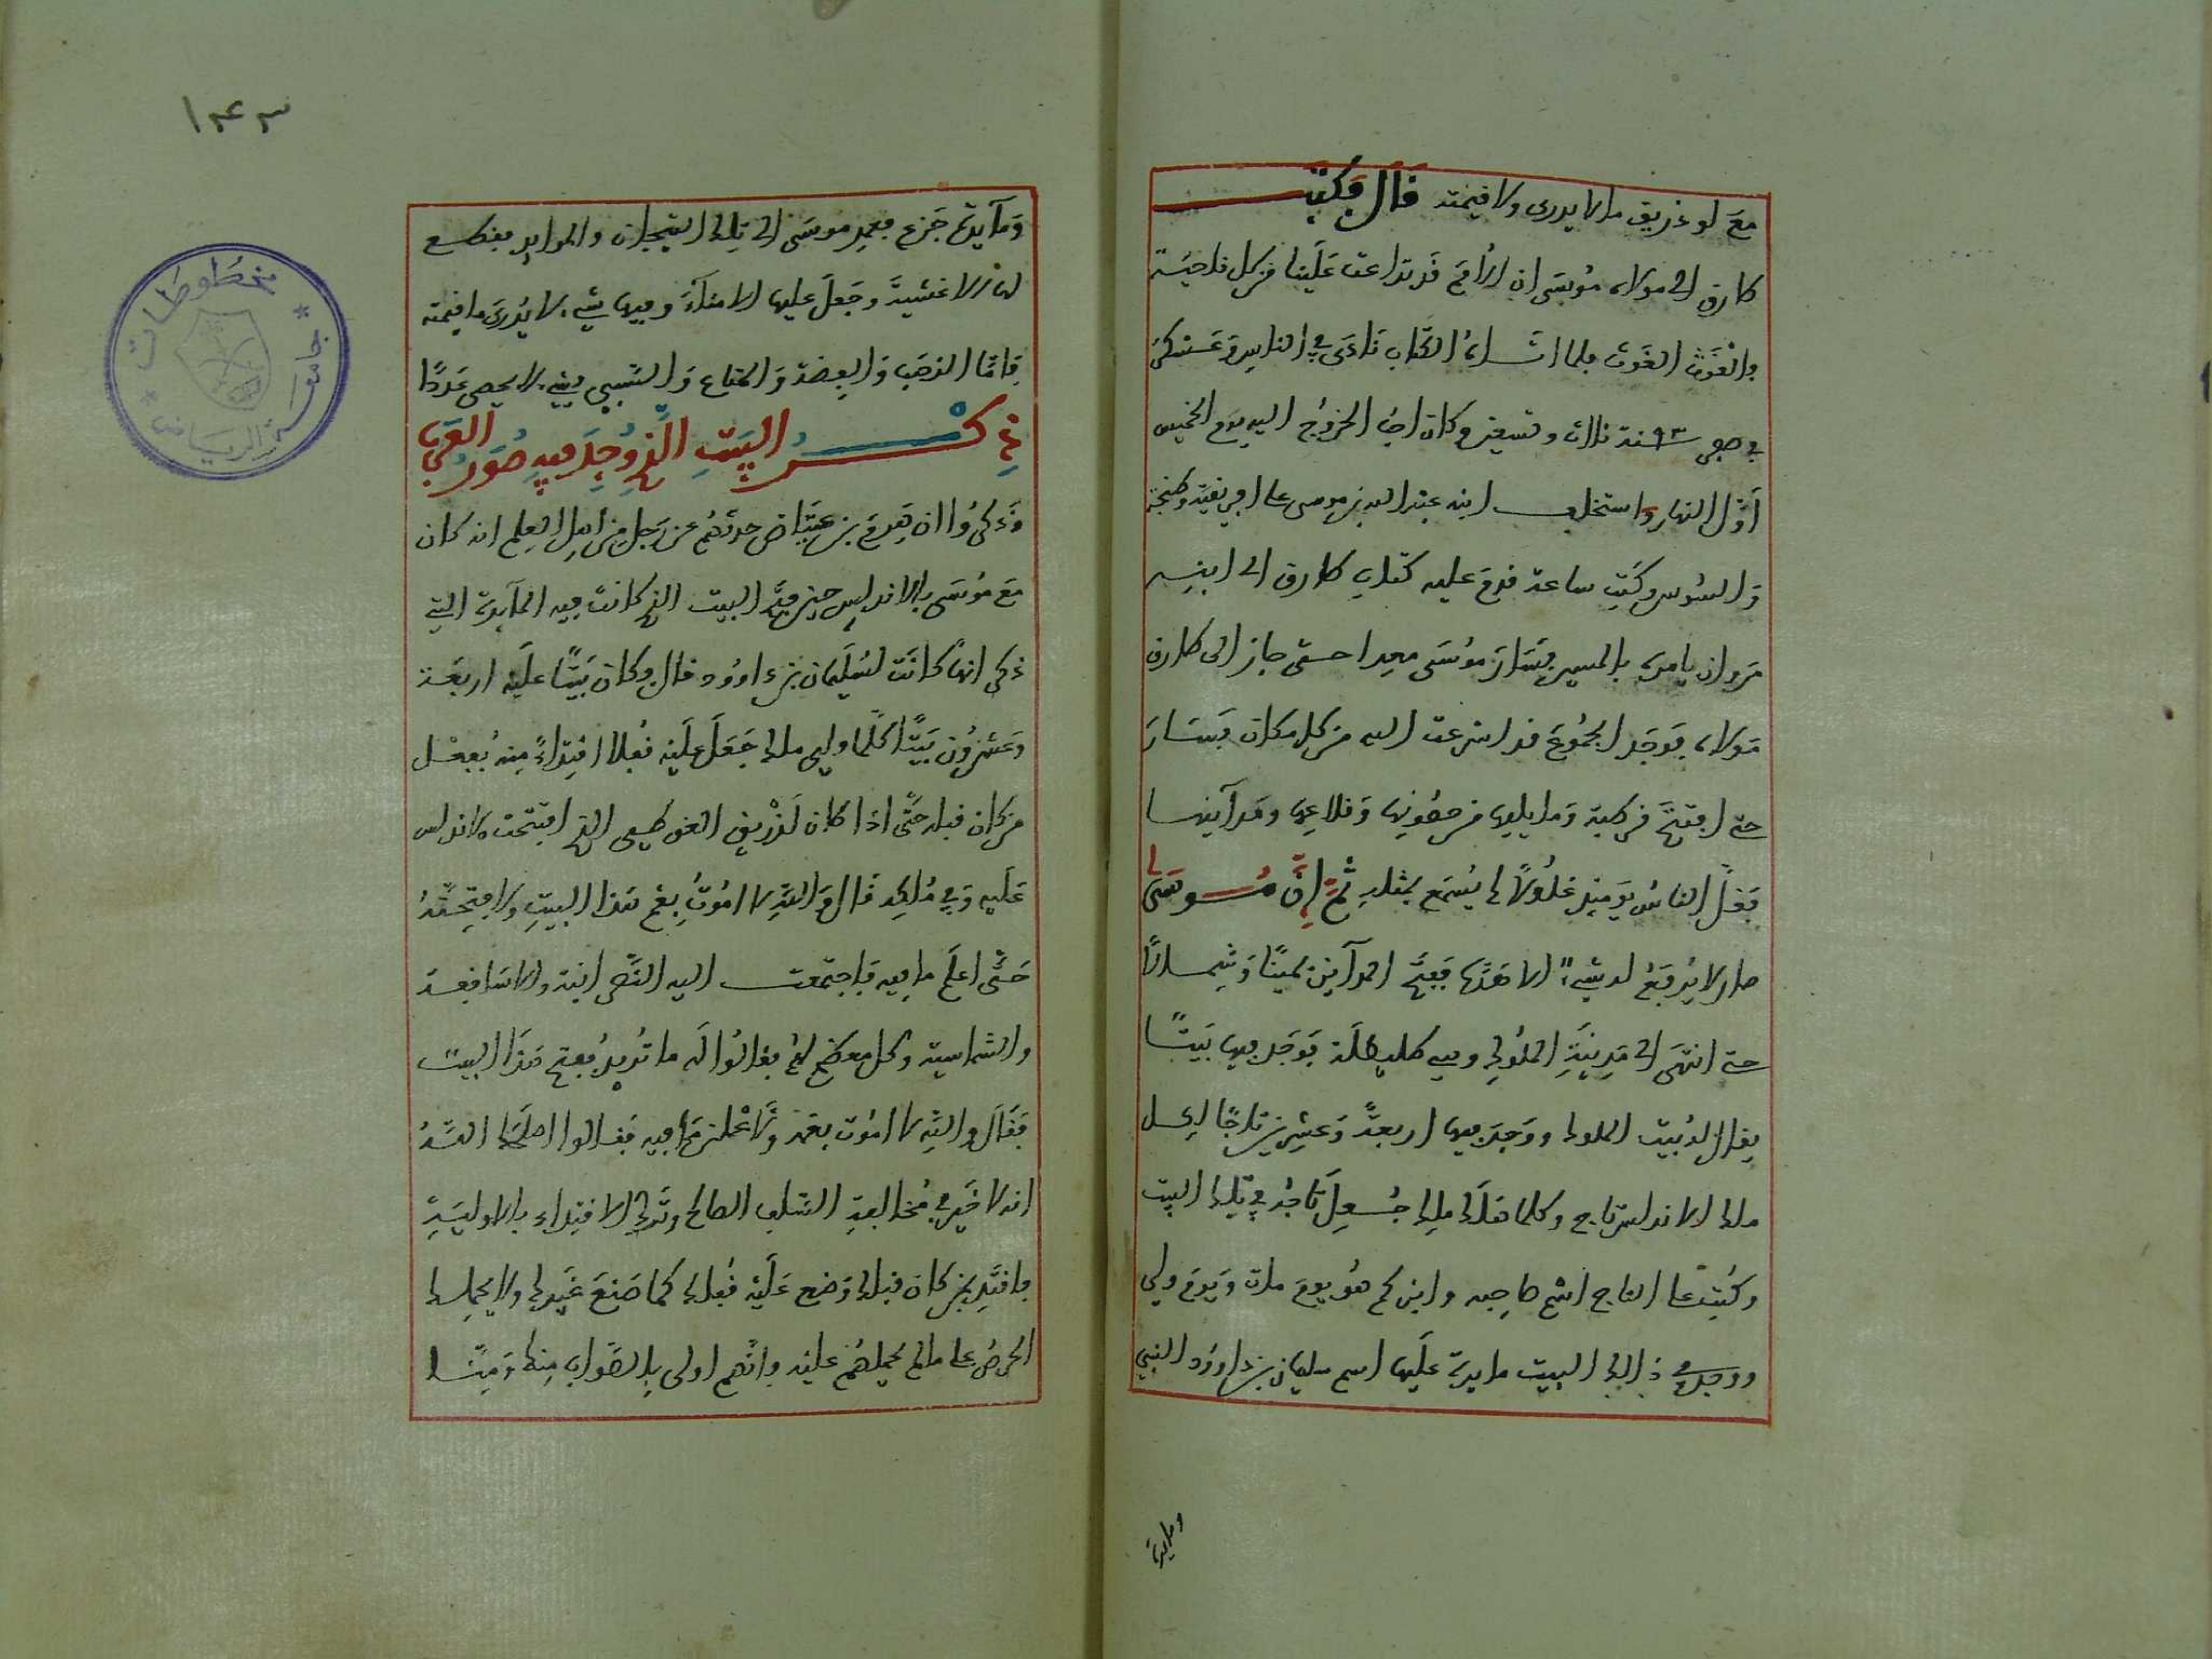 مع لوذريق ما لا يدرى ولا قيمته قال وكتب
طارق الى مولاه موسى ان الأمم قد تداعت علينا من كل ناحية
فالغوث الغوث فلما اتاه الكتاب نادى في الناس وعسكر
في صفر ٩٣ سنة ثلاث وتسعين وكان احب الخروج اليه يوم الخميس
أول النهار واستخلف ابنه عبد الله بن موسى على افريقية وطنجة
والسوس وكتب ساعة قدم عليه كتاب طارق الى ابنه
مروان يامره بالمسير فسار موسى معدا حتى جاز الى طارق
مولاه فوجد الجموع قد اسرعت اليه من كل مكان فسار
حتى افتتح قرطبة وما يليها من حصونها وقلاعها ومدآينها
فغل الناس يومئذ غلولا لم يسمع بمثله ثم إن موسى
صار لا يرفع له شيء الا هده ففتح المدآين يمينا وشمالا
حتى انتهى الى مدينة الملوك وهي طليطلة فوجد فيها بيتا
يقال له بيت الملوك ووجد فيها اربعة وعشرين تاجا لكل
ملك الاندلس تاج وكلما هلك ملك جعل تاجه في تلك البيت
وكتب على التاج اسم صاحبه وابن كم هو يوم مات ويوم ولي
ووجد في ذالك البيت مايدة عليها اسم سليمان بن داوود النبي
ومايدة
١٤٣
ومآيدة جزع فعمد موسى الى تلك التيجان والموايد فقطع
لها الاغشية وجعل عليها الامنآء وفيها شيء لا يدرى ما قيمته
فامّا الذهب والفضة والمتاع والسبي فشيء لا يحصى عددا
ذكر البيت الذي وجد فيه صور العرب
وذكروا ان هرم بن عياض حدثهم عن رجل من اهل العلم انه كان
مع موسى بالاندلس حين فتح البيت الذي كانت فيه المآيدة التي
ذكر انها كانت لسليمان بن داوود قال وكان بيتا عليه اربعة
وعشرون بيتا كلما ولي ملك جعل عليه قفلا اقتداء منه بفعل
من كان قبله حتى اذا كان لذريق الغوطي الذي افتتحت الاندلس
عليه وفي ملكه قال والله لا اموت بغم هذا البيت ولافتحنه
حتى اعلم ما فيه فاجتمعت اليه النصرانية والاساقفة
والشمامسة وكل معظم له فقالوا له ما تريد بفتح هذا البيت
فقال والله لا اموت بغمه ولاعلمن ما فيه فقالوا اصلحك الله
انه لا خير في مخالفة السلف الصالح وترك الاقتداء بالاولية
فاقتد بمن كان قبلك وضع عليه قفلا كما صنع غيرك ولا يحملك
الحرص على ما لم يحملهم عليه فانهم اولى بالصواب منك ومنا
مخطوطات
جامعة الرياض